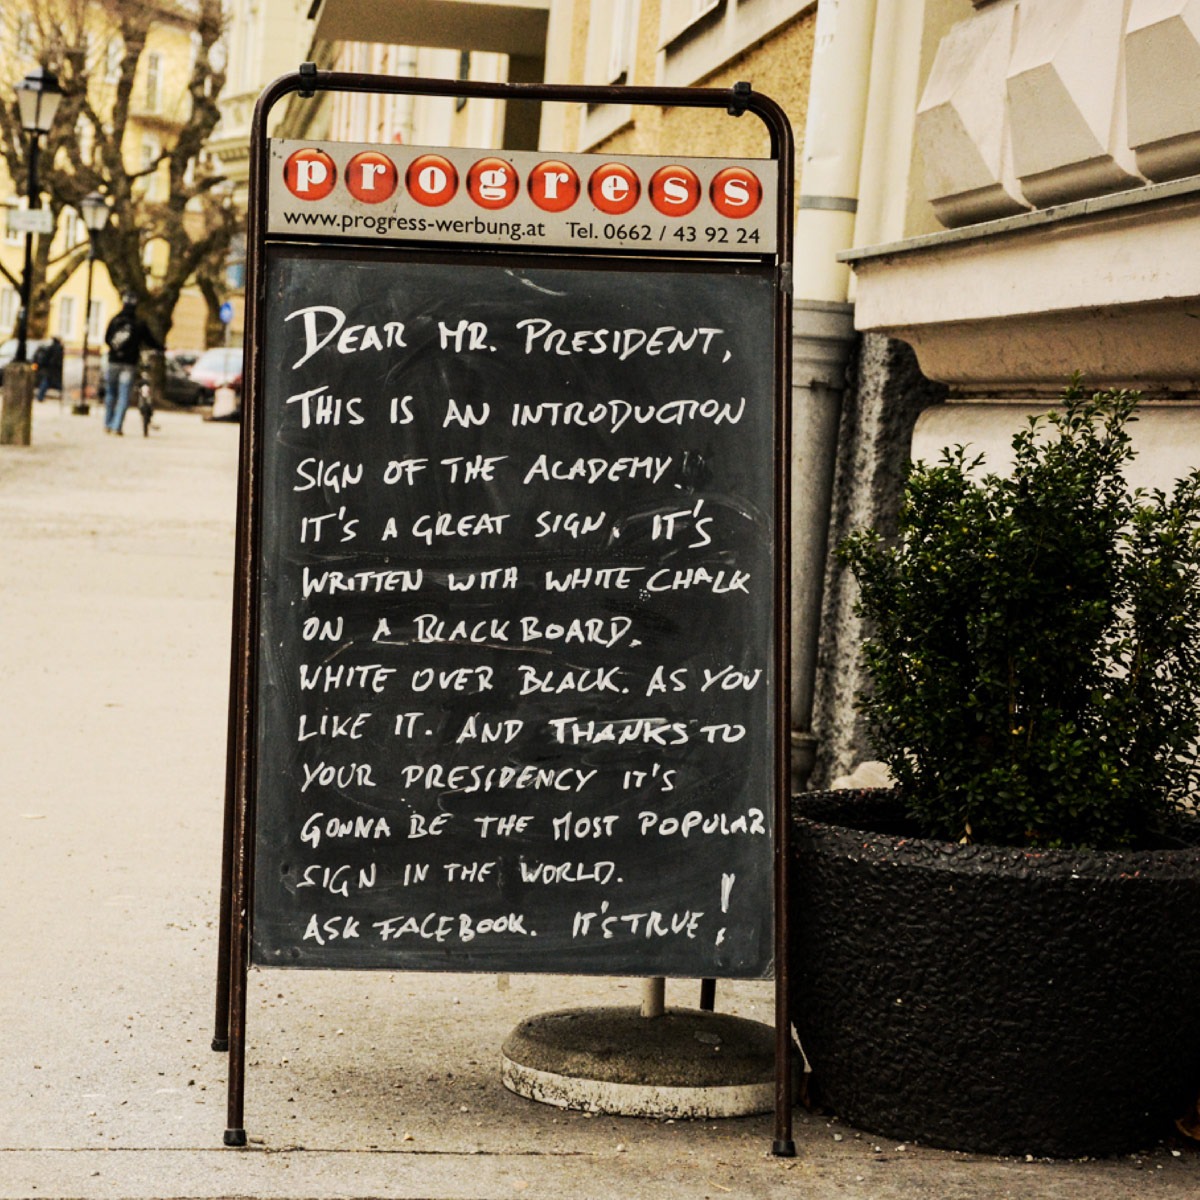 progress
www.progress-werbung.at Tel. 0662 / 43 92 24
DEAR MR. PRESIDENT,
THIS IS AN INTRODUCTION
SIGN OF THE ACADEMY.
IT'S A GREAT SIGN. IT'S
WRITTEN WITH WHITE CHALK
ON A BLACKBOARD.
WHITE OVER BLACK. AS YOU
LIKE IT. AND THANKS TO
YOUR PRESIDENCY IT'S
GONNA BE THE MOST POPULAR
SIGN IN THE WORLD.
ASK FACEBOOK. IT'S TRUE!